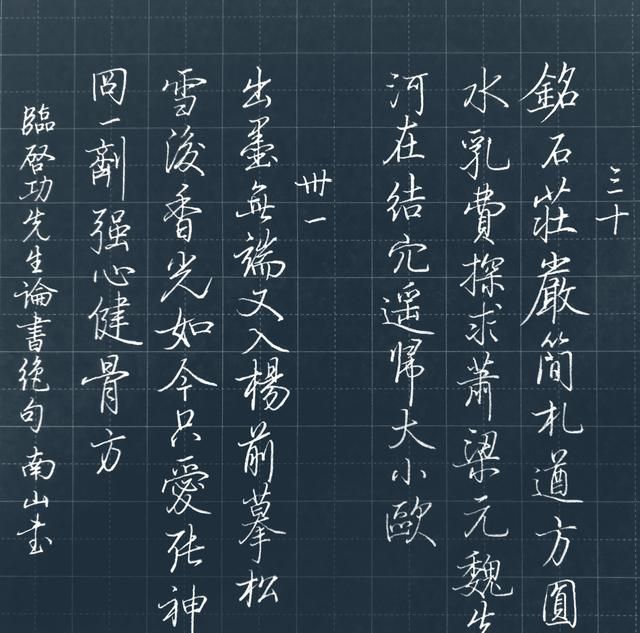 三十
銘石莊嚴簡札遒方圓
水乳費探求蕭梁元魏先
河在結穴遥帰大小歐
卅一
出墨無端又入楊前摹松
雪後香光如今只愛張神
冏一劑强心健骨方
臨啓功先生論書絶句南山书